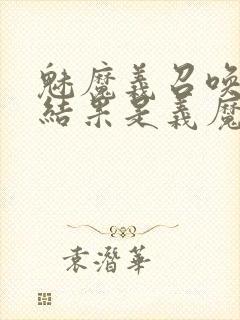 魅魔義召喚
結果是義魔
袁潛華